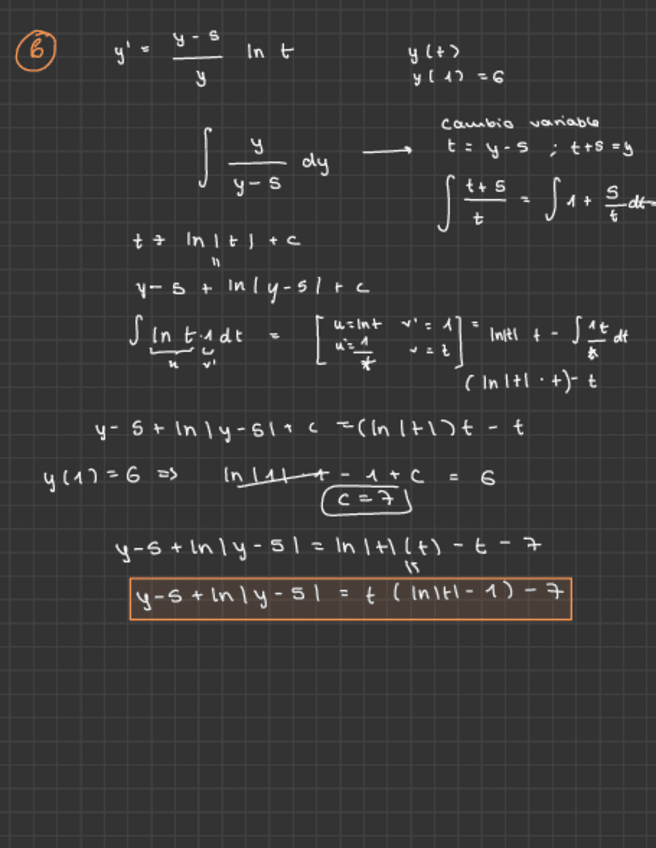 6
y' = (y - 5)/y ln t    y(t)
y(1) = 6
∫ y/(y - 5) dy ⟶
Cambio variable
t = y - 5 ; t + 5 = y
∫ (t + 5)/t = ∫ 1 + 5/t dt
t + ln|t| + c
"
y - 5 + ln|y - 5| + c
∫ ln t · 1 dt = [ u = ln t  v' = 1  u' = 1/t  v = t ] = ln|t| t - ∫ 1t/t dt
u v'
(ln|t| · t) - t
y - 5 + ln|y - 5| + c = (ln|t|) t - t
y(1) = 6 => ln|1| · 1 - 1 + c = 6
c = 7
y - 5 + ln|y - 5| = ln|t| (t) - t - 7
y - 5 + ln|y - 5| = t (ln|t| - 1) - 7